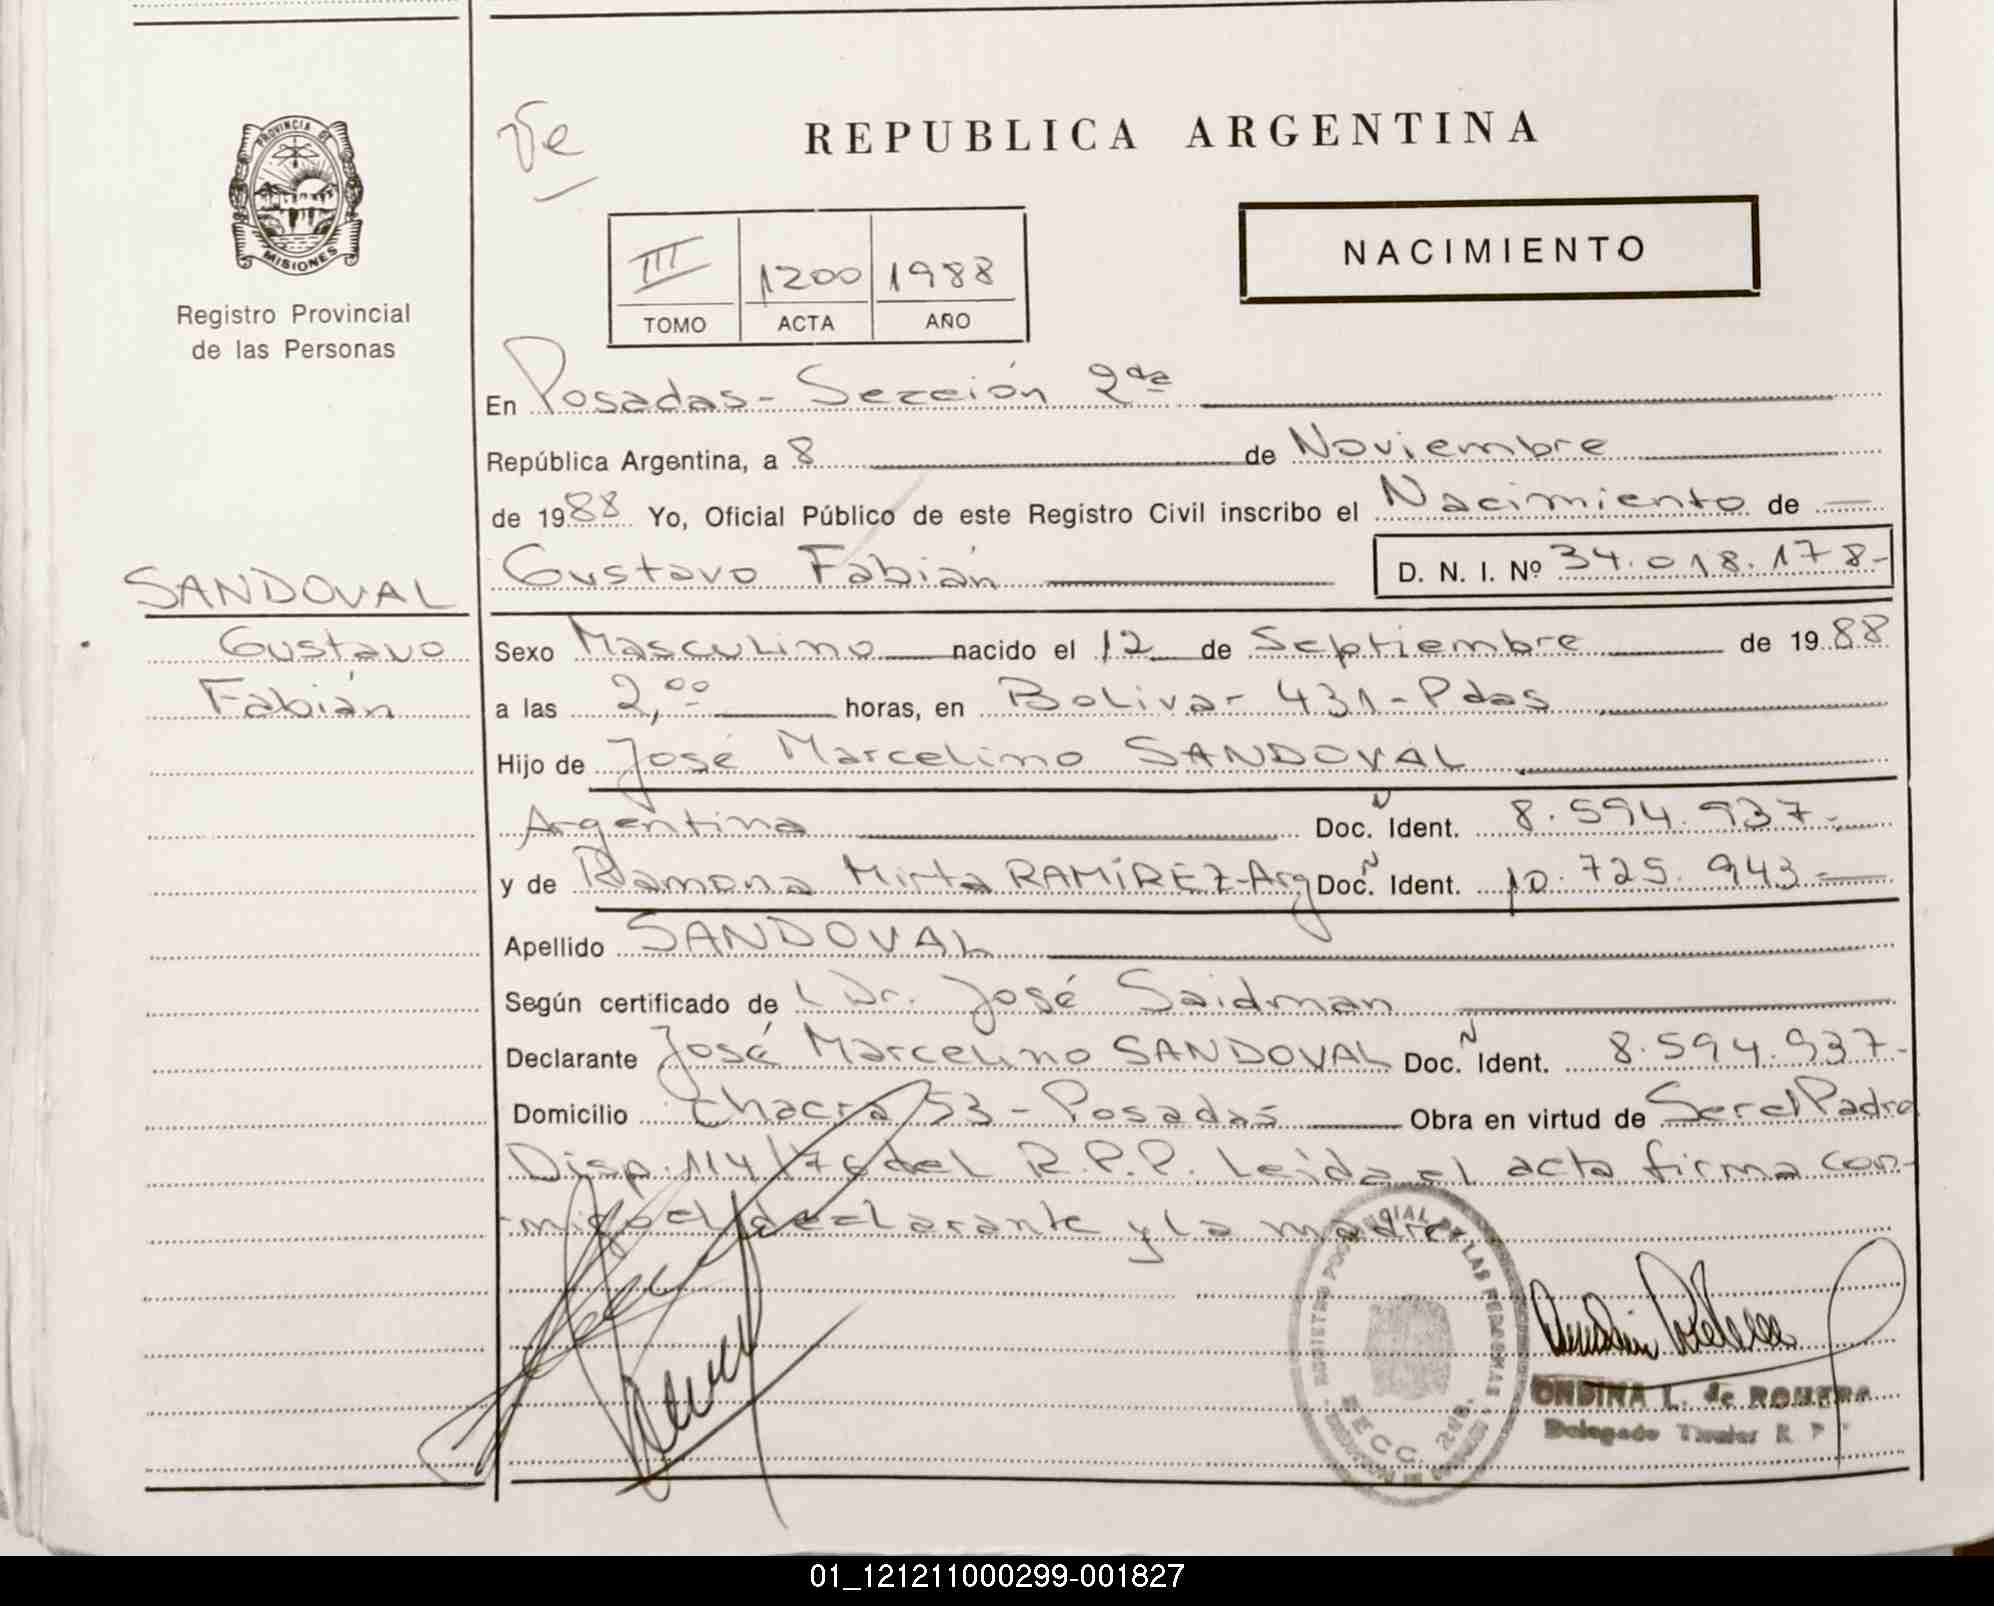 PROVINCIA DE
MISIONES
Registro Provincial
de las Personas
REPUBLICA ARGENTINA
NACIMIENTO
III 1200 1988
TOMO ACTA AÑO
En Posadas - Sección 2da
República Argentina, a 8 de Noviembre
de 1988 Yo, Oficial Público de este Registro Civil inscribo el Nacimiento de
Gustavo Fabián D. N. I. Nº 34.018.178-
SANDOVAL
Gustavo
Fabián
Sexo Masculino nacido el 12 de Septiembre de 1988
a las 2,00 horas, en Bolivar 431 - Pdas
Hijo de José Marcelino SANDOVAL
Argentina Doc. Ident. 8.594.937-
y de Ramona Mirta RAMÍREZ-Arg Doc. Ident. 10.725.943-
Apellido SANDOVAL
Según certificado de Dr. José Saidman
Declarante José Marcelino SANDOVAL Doc. Ident. 8.594.937-
Domicilio Chacra 53 - Posadas Obra en virtud de Ser el Padre
Disp. 114/76 del R.P.P. Leida el acta firma con-
migo el declarante y la madre
ONDINA L. de ROMERO
Delegado Titular R P
SECC. 2da.
01_121211000299-001827